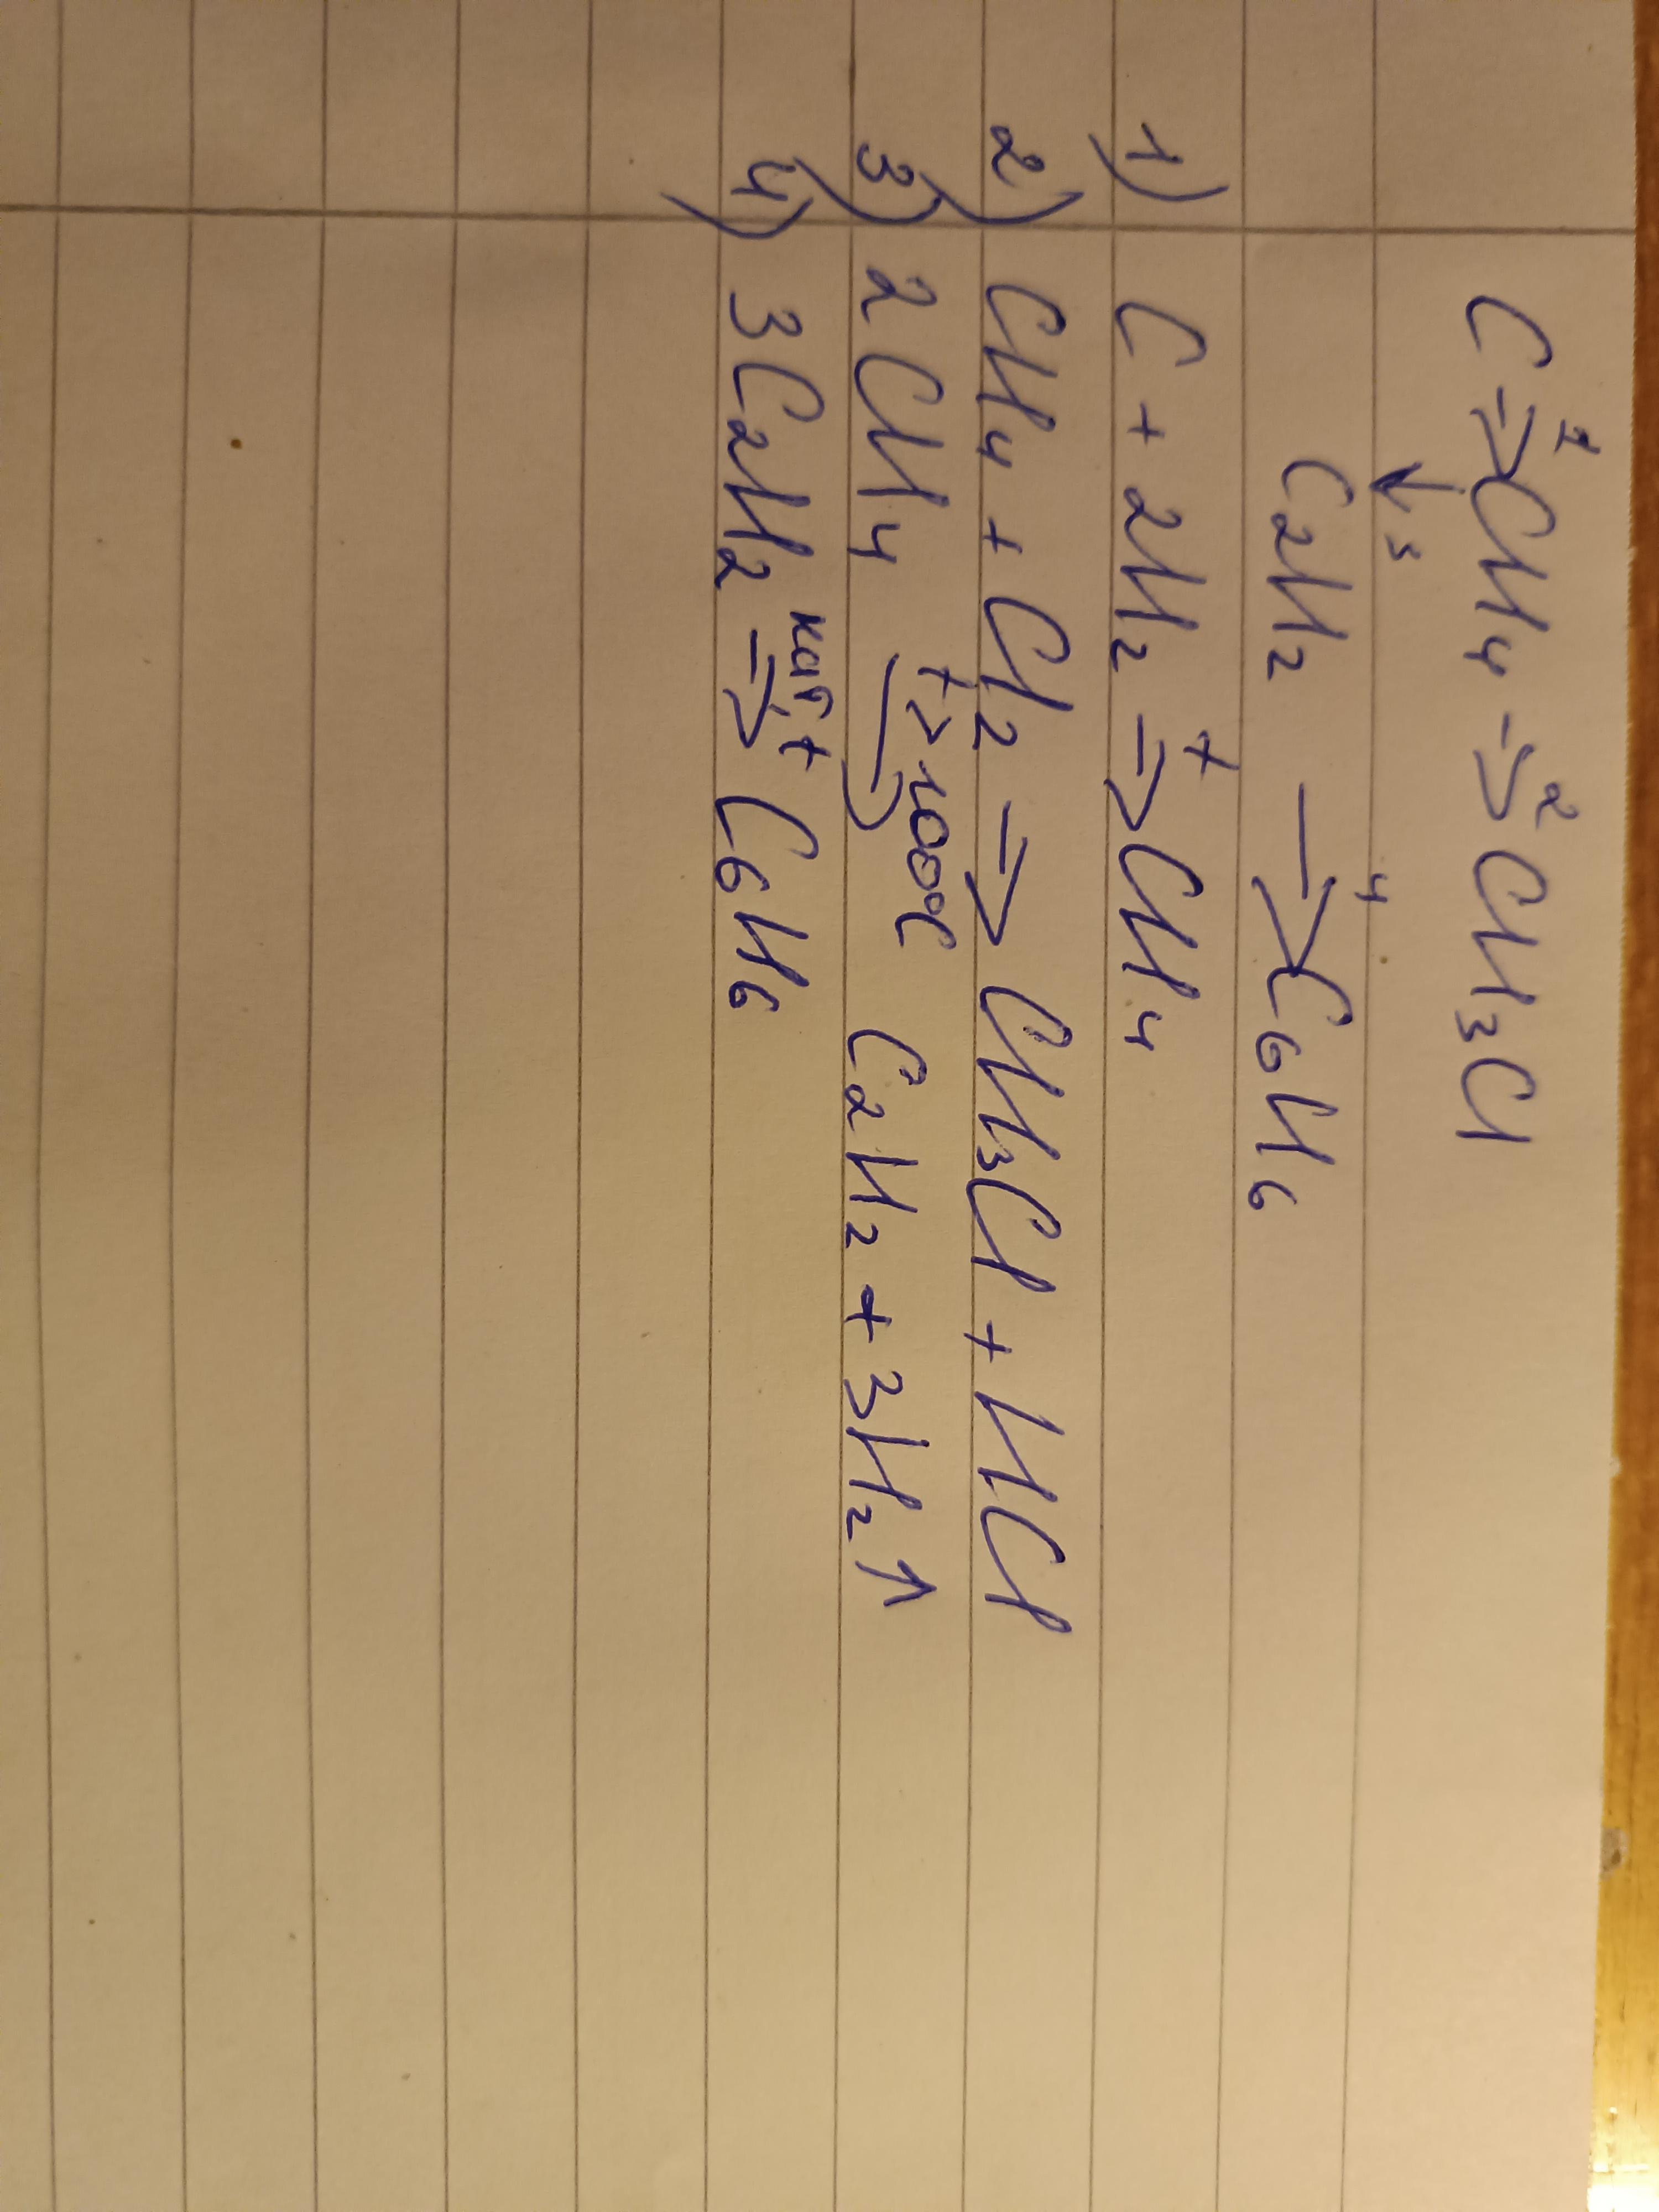 C →¹ CH₄ →² CH₃Cl
↓3
C₂H₂ →⁴ C₆H₆
1) C + 2H₂ →ᵗ CH₄
2) CH₄ + Cl₂ → CH₃Cl + HCl
3) 2CH₄ t>100°C → C₂H₂ + 3H₂↑
4) 3C₂H₂ кат, t → C₆H₆